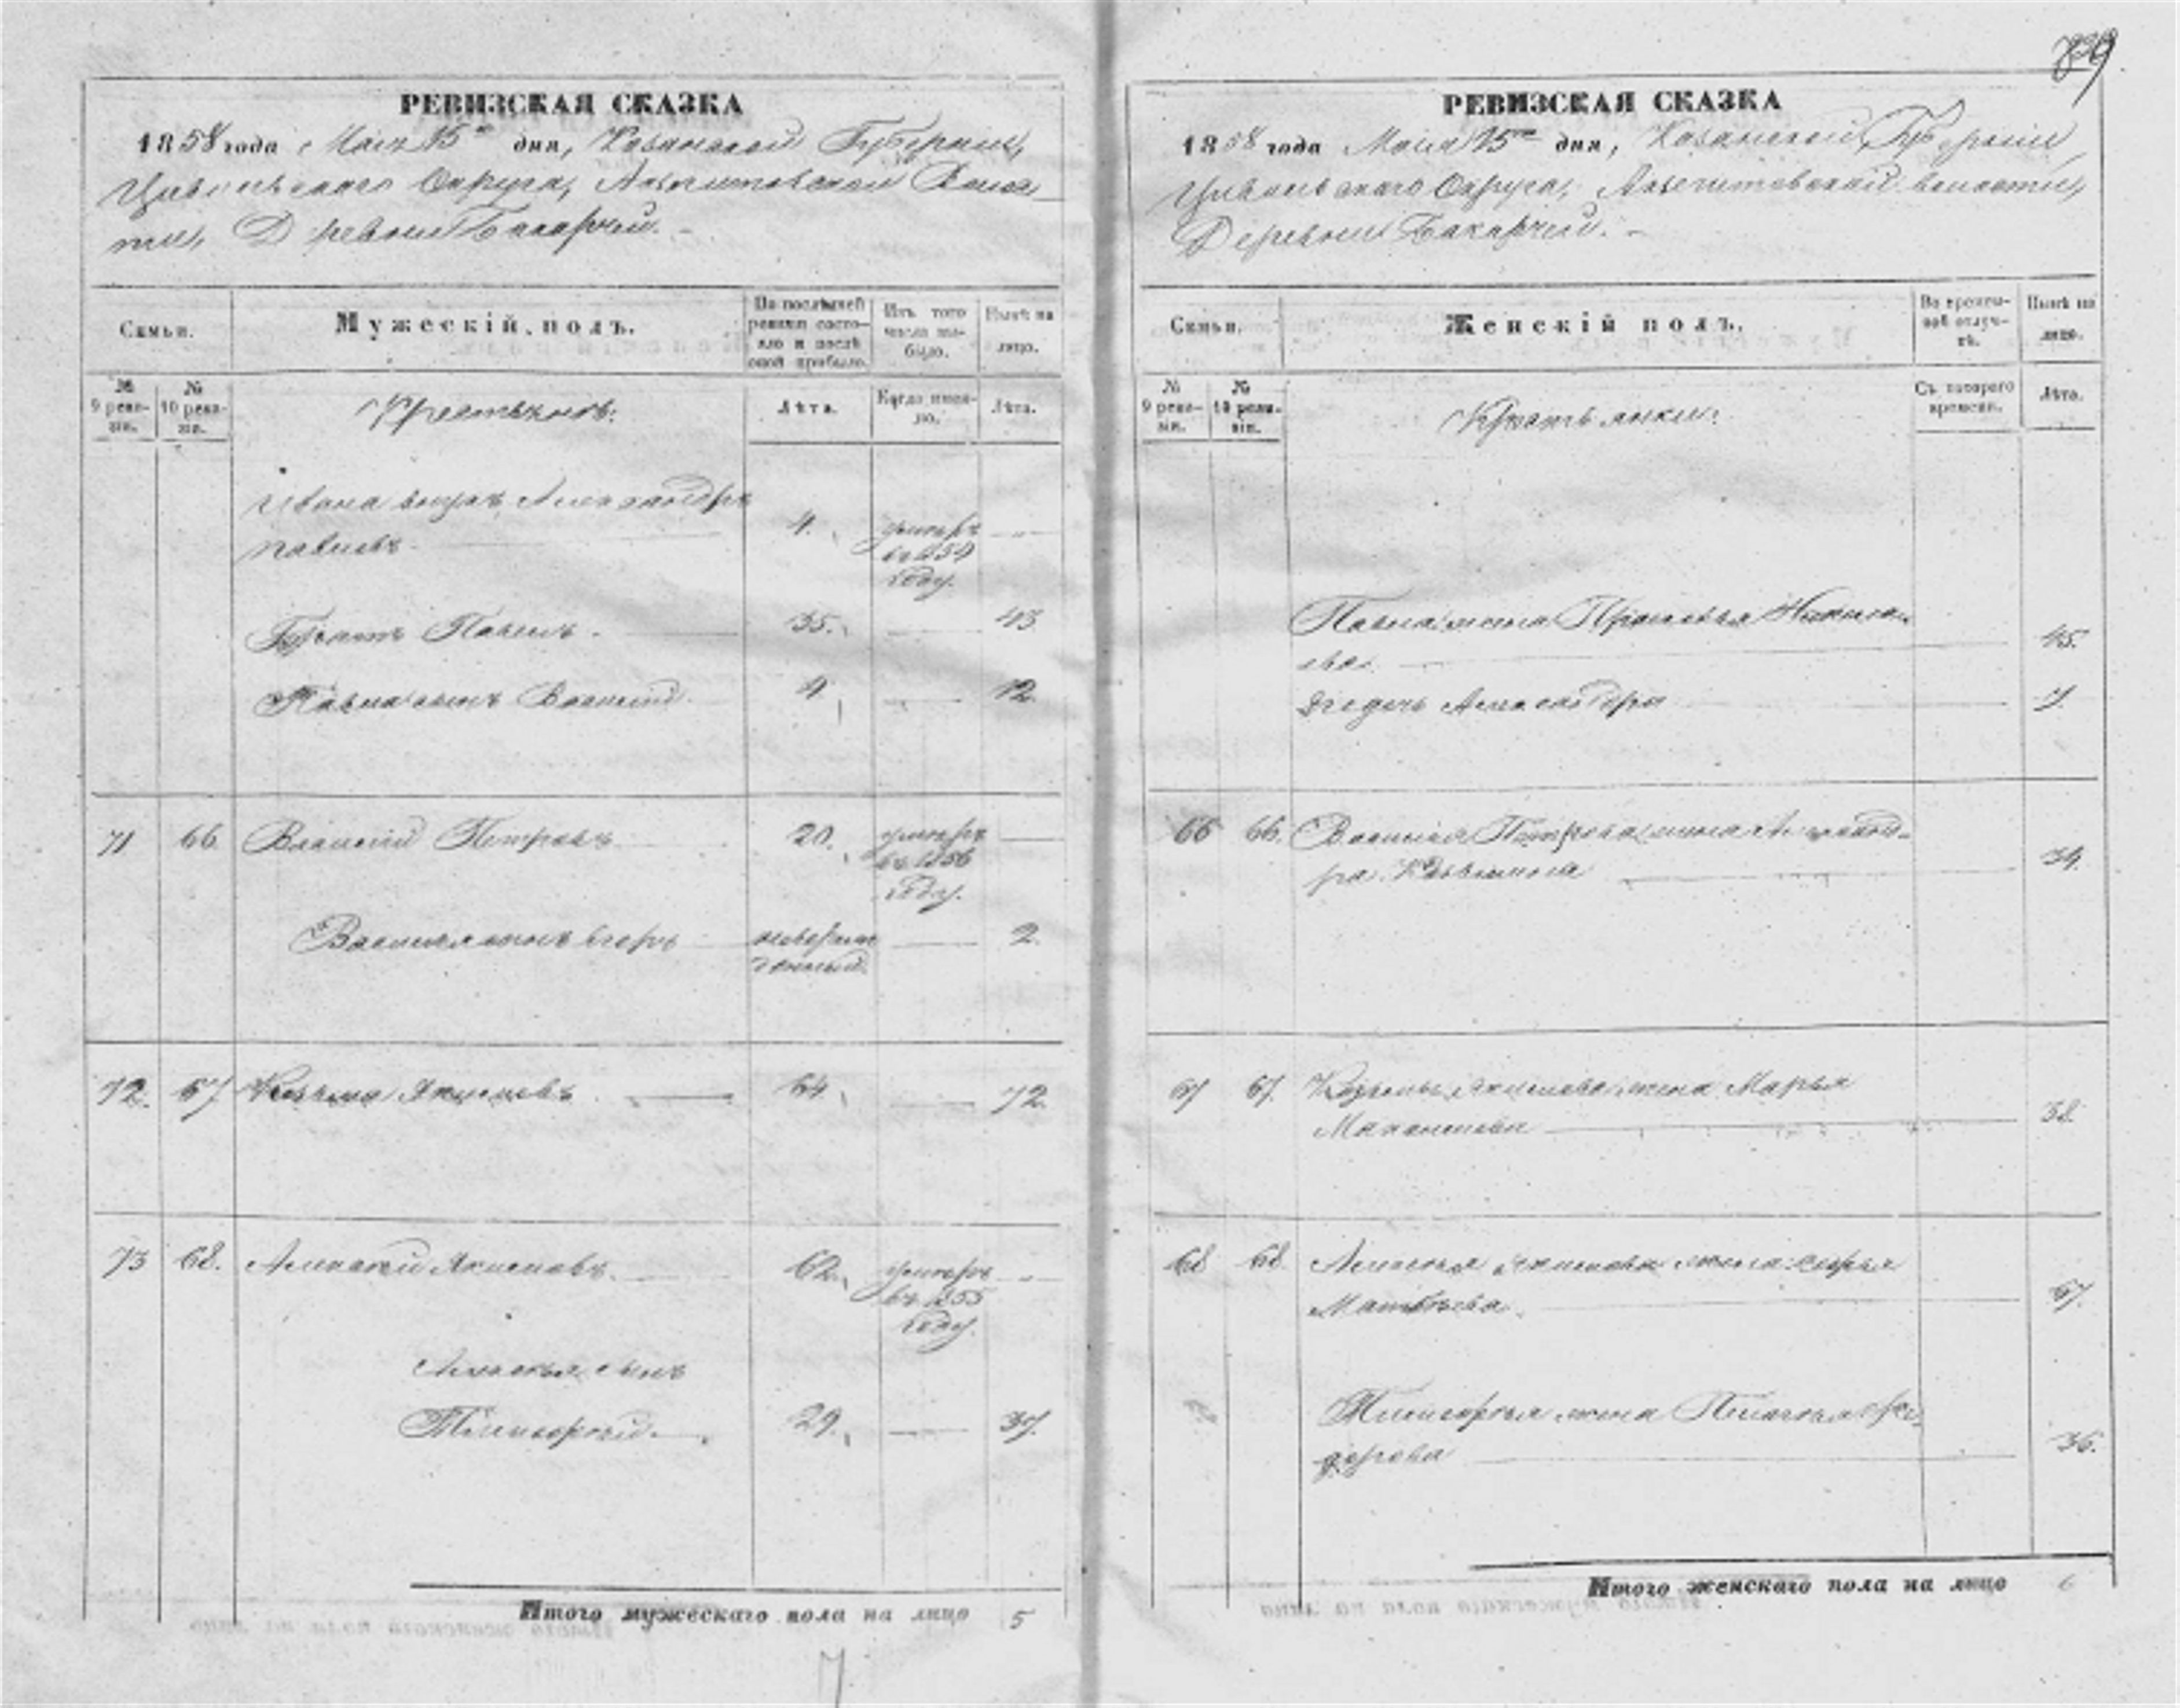 839
РЕВИЗСКАЯ СКАЗКА
1858 года Мая 15го дня, Казанской Губернии,
Цивильскаго Округа, Волос-
ти, Деревни Бакарчи.
Семьи.
Мужескій полъ.
По послѣдней ревизіи состо-
яло и послѣ оной прибыло.
Изъ того числа вы-
было.
Нынѣ на лицо.
№ 9 реви-
зіи.
№ 10 реви-
зіи.
Крестьянъ:
Лѣта.
Когда имен-
но.
Лѣта.
Ивана внукъ Александръ
Павловъ
4.
умеръ
въ 1854
году.
Братъ Павелъ.
35.
43
Павла сынъ Василій
4
12.
71
66
Василій Петровъ
20.
умеръ
въ 1856
году.
Василья сынъ Егоръ
новорож
денный
2.
72.
67
Козьма Якимовъ
64
72.
73
68.
Алексей Якимовъ.
62.
умеръ
въ 1855
году.
Алексья сынъ
29.
37.
Итого мужескаго пола на лицо 5
7
РЕВИЗСКАЯ СКАЗКА
1858 года Мая 15го дня, Казанской Губерніи
Цивильскаго Округа, волости,
Деревни Бакарчи.
Семьи.
Женскій полъ.
Во времен-
ной отлуч-
кѣ.
Нынѣ на лицо.
№ 9 реви-
зіи.
№ 10 реви-
зіи.
Крестьянки:
Съ котораго времени.
Лѣта.
Павла жена Прасковья
45.
дочь Александра
66
66.
Василья Петрова жена Александ-
ра
34.
67
67.
Козьмы Якимова жена Марья
38.
68
68
Алексья Якимова жена Дарья
Матвѣева
67.
жена Пелагея Фе-
дорова
36.
Итого женскаго пола на лицо 6